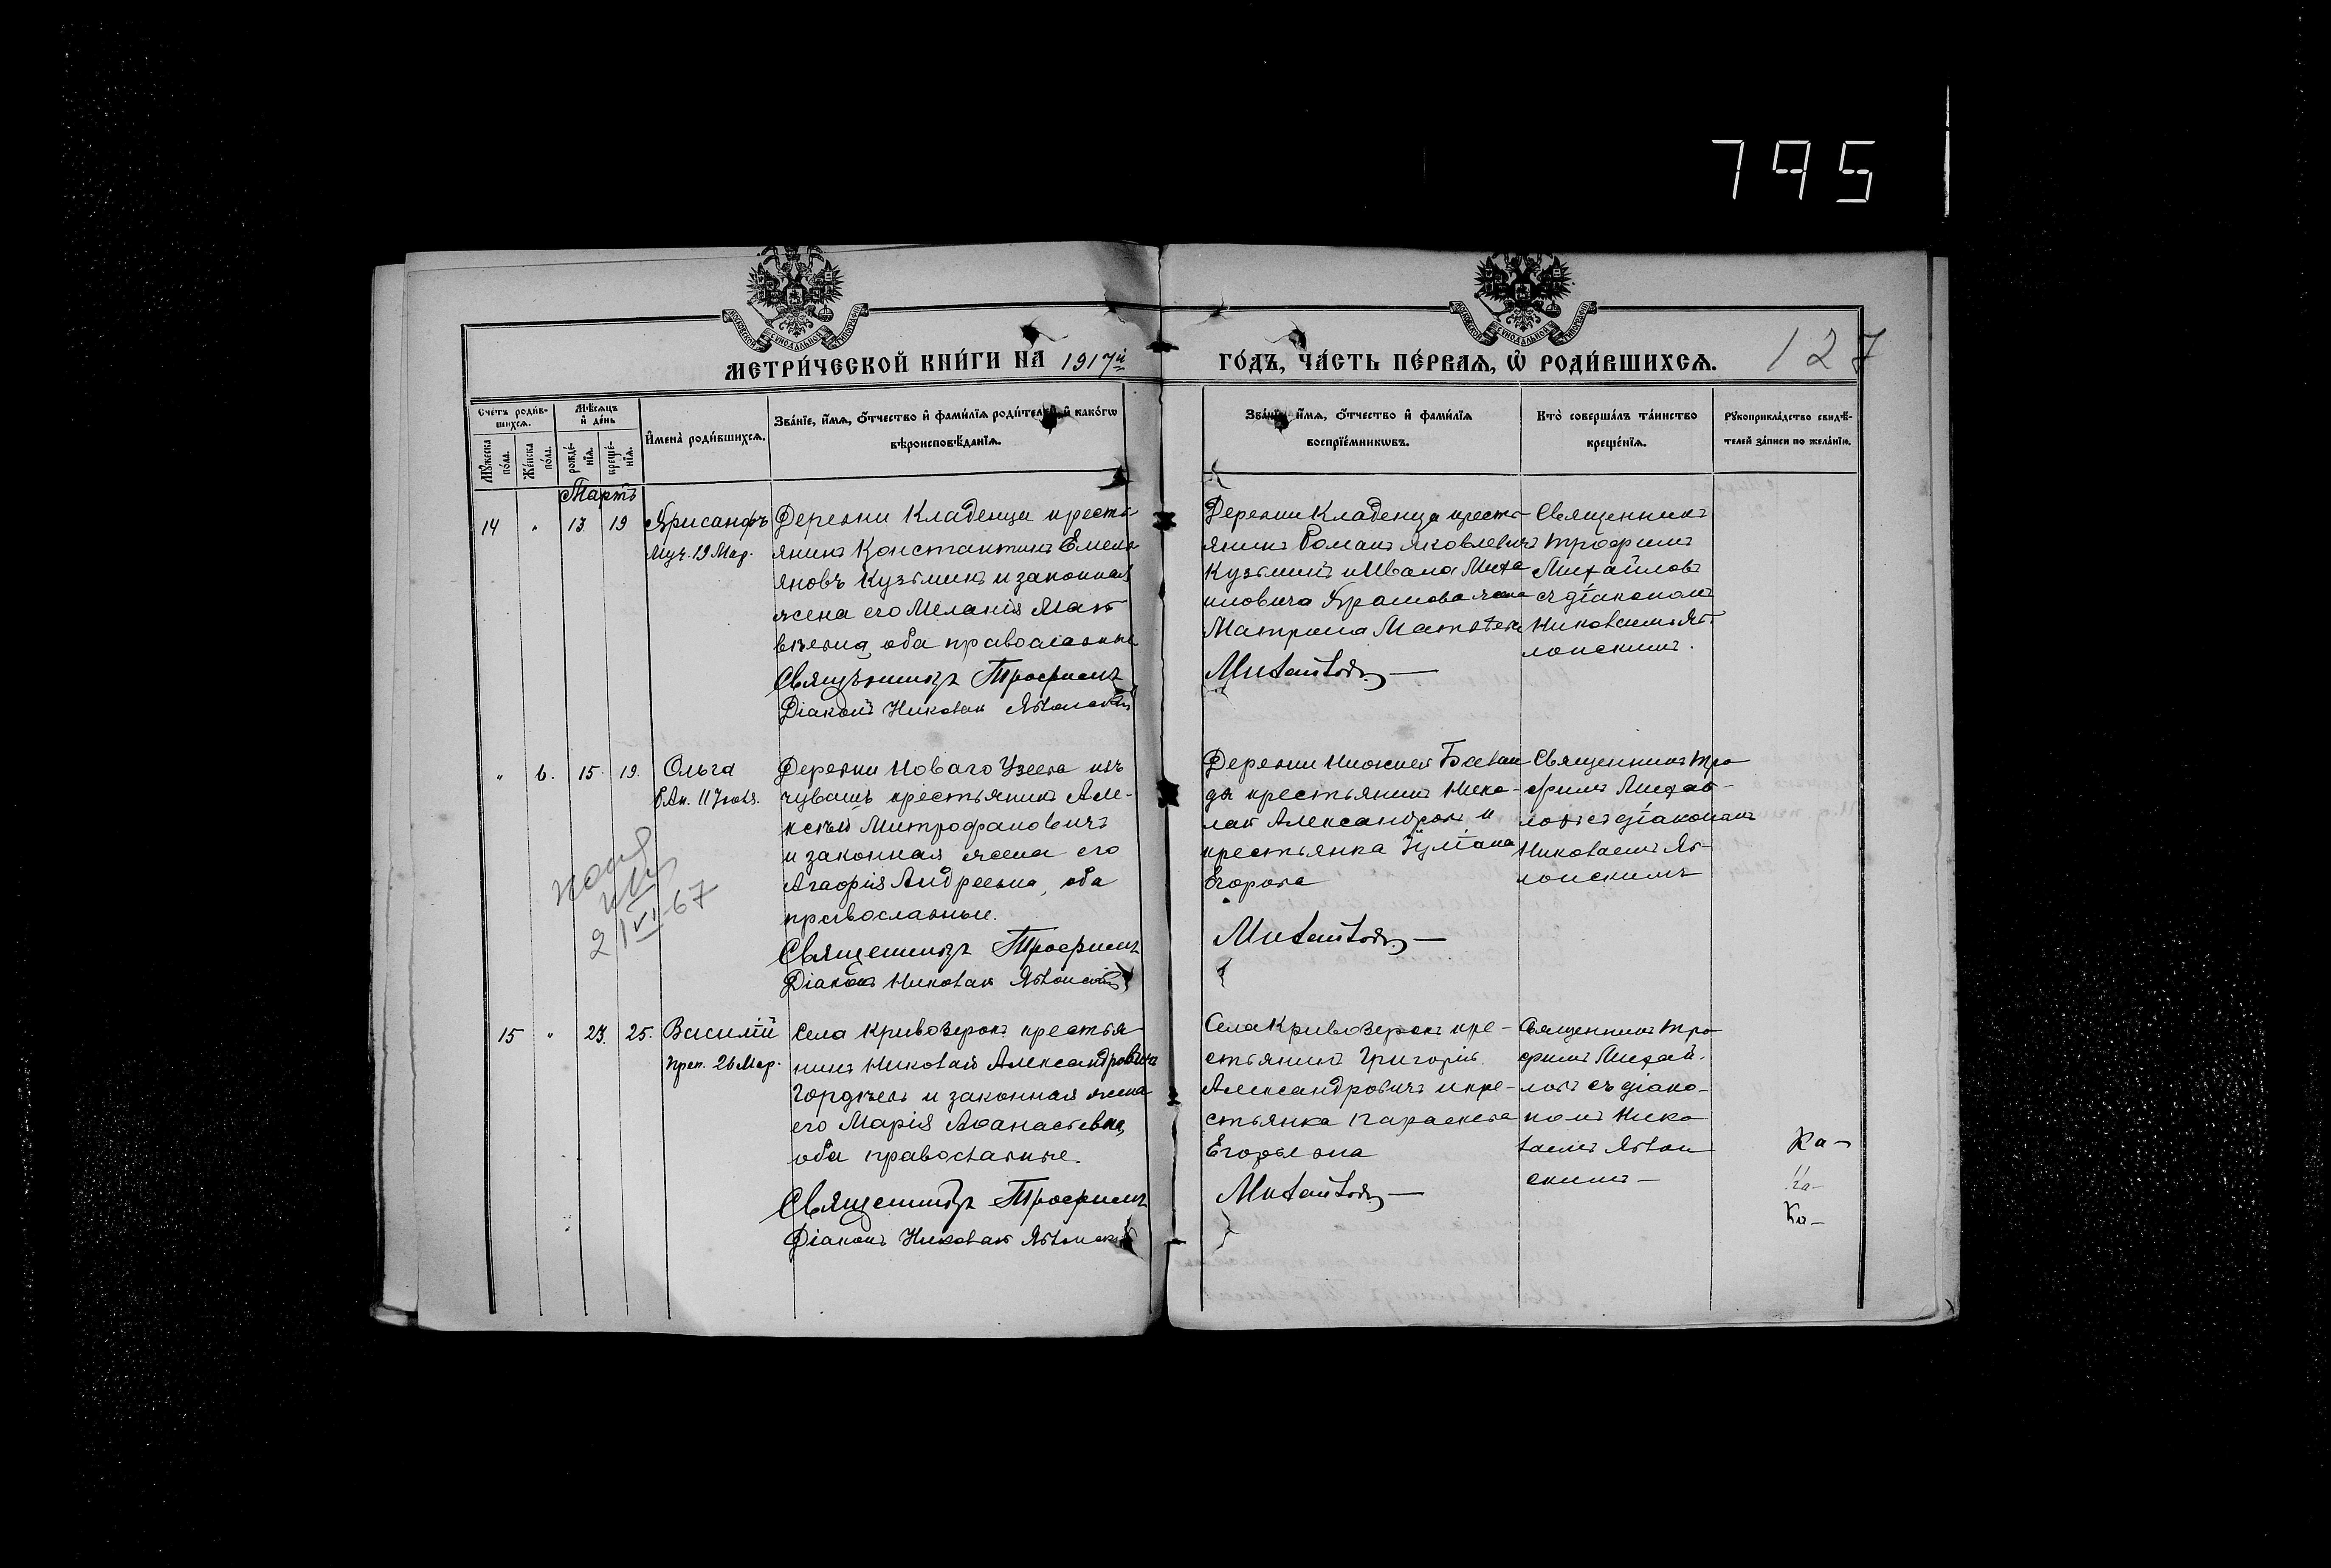 795
МЕТРИ́ЧЕСКОЙ КНИ́ГИ НА 1917й
ГО́ДЪ, ЧА́СТЬ ПЕ́РВАЯ, Ѡ РОДИ́ВШИХСЯ.
127
Сче́тъ роди́в-
шихся.
Му́жеска
по́ла.
Же́нска
по́ла.
Мѣ́сяцъ
и де́нь
рожде́-
нїя.
креще́-
нїя.
Имена̀ роди́вшихся.
Зва́нїе, и́мя, о́тчество и фами́лїя роди́телей, и како́гѡ
вѣроисповѣ́данїя.
Зва́нїе, и́мя, о́тчество и фами́лїя
воспрїе́мникѡвъ.
Кто̀ соверша́лъ та́инство
креще́нїя.
Рꙋкоприкла́дство свидѣ́-
телей за́писи по жела́нїю.
Мартъ
14 " 13 19
Хрисанфъ
муч. 19 Мар.
Деревни Кладенца кресть-
янинъ Константинъ Емель
яновъ Кузьминъ и законная
жена его Меланія Мат
вѣевна, оба православные
Священникъ Трофимъ
Діаконъ Николай Яблонскій
Деревни Кладенца кресть-
янинъ Романъ Яковлевичъ
Кузьминъ и Ивана Миха
иловича Абрамова жена
Матрона Матвѣева
Михайловъ
Священникъ
Трофимъ
Михайловъ
съ діакономъ
Николаемъ Яб-
лонскимъ.
" 6. 15. 19.
Ольга
р. Ан. 11 Іюля.
Деревни Новаго Узеева изъ
чувашъ крестьянинъ Але-
ксѣй Митрофановичъ
и законная жена его
Агафія Андреевна, оба
православные.
Священникъ Трофимъ
Діаконъ Николай Яблонскій
Деревни Нижней Баган
ды крестьянинъ Нико-
лай Александровъ и
крестьянка Іуліана
Егорова
Михайловъ
Священникъ Тро
фимъ Михай-
ловъ съ діакономъ
Николаемъ Яб-
лонскимъ
2/VI-67
15 " 23. 25.
Василій
преп. 26 Мар.
Села Кривозерокъ крестья
нинъ Николай Александровичъ
Гордѣевъ и законная жена
его Марія Аѳанасьевна,
оба православные.
Священникъ Трофимъ
Діаконъ Николай Яблонскій
Села Кривозерокъ кре-
стьянинъ Григорій
Александровичъ и кре-
стьянка Параскева
Егорьевна
Михайловъ
Священникъ Тро
фимъ Михай-
ловъ съ діако-
номъ Нико
лаемъ Яблон
скимъ
Ка-
Ка-
Ка-